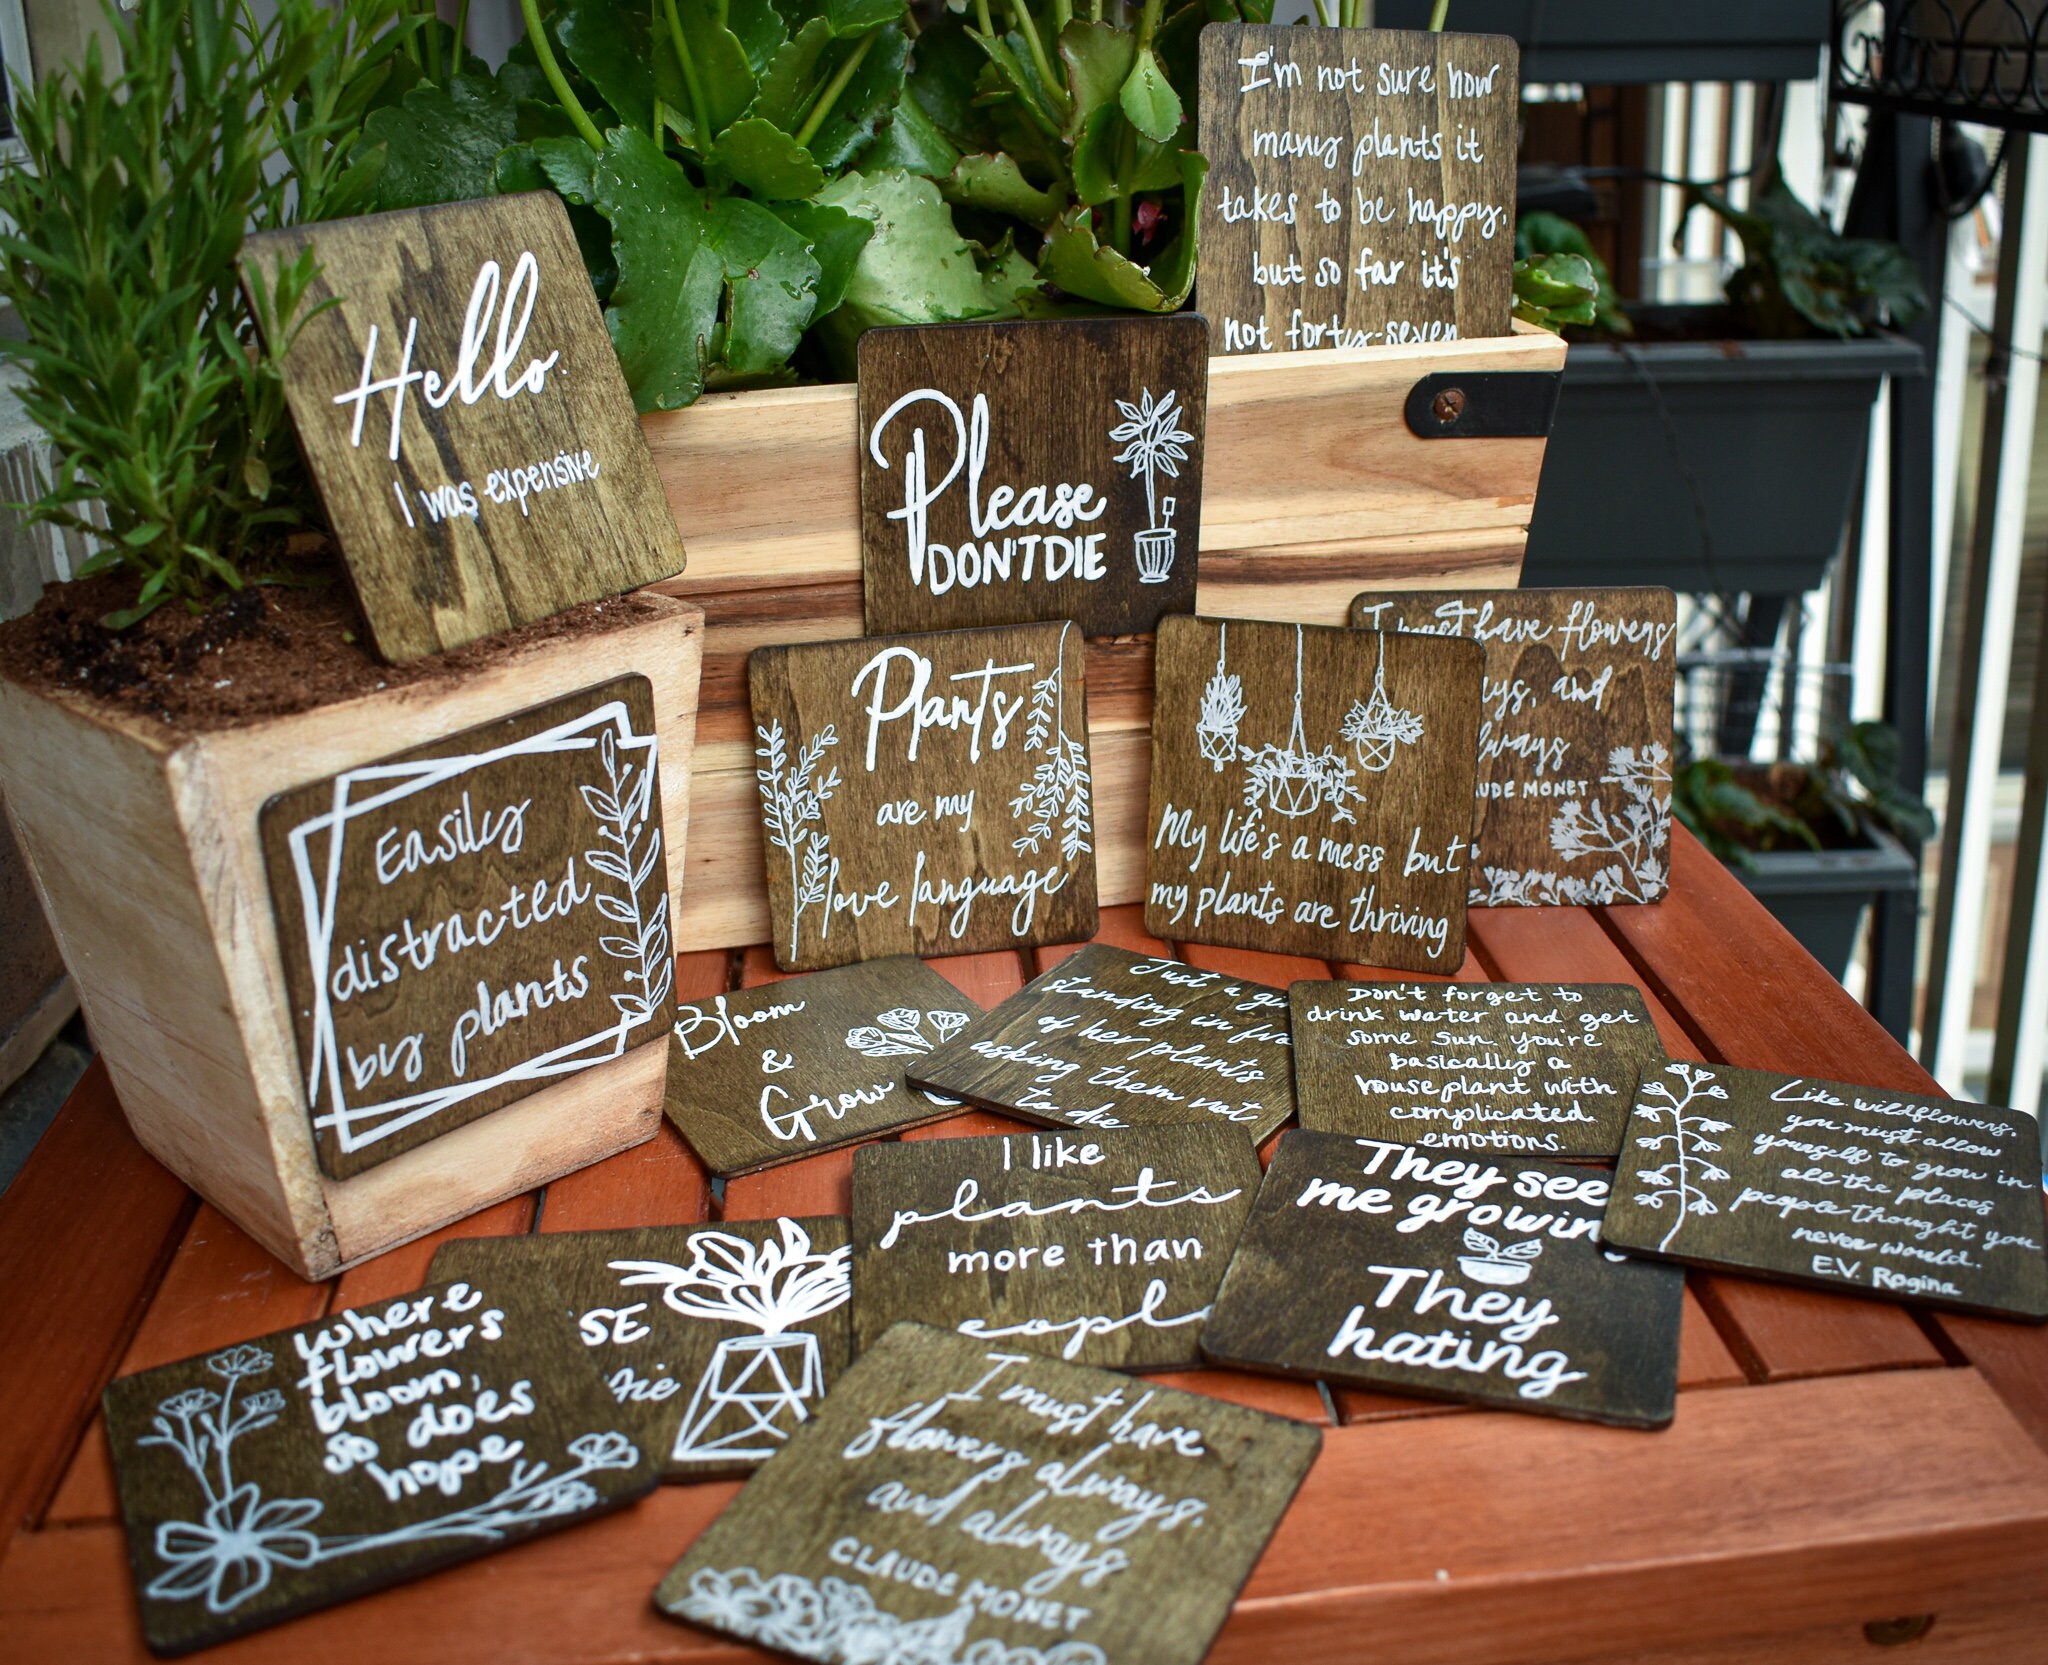 I'm not sure how
many plants it
takes to be happy,
but so far it's
not forty-seven
Hello.
I was expensive
Please
DON'T DIE
I must have flowers
and
always
MONET
Plants
are my
love language
My life's a mess but
my plants are thriving
Easily
distracted
by plants
Bloom
&
Grow
Just a
standing in
of her plants
asking them not
to die
Don't forget to
drink water and get
some sun. you're
basically a
houseplant with
complicated
emotions.
Like wildflowers,
you must allow
yourself to grow in
all the places
people thought you
never would.
E.V. Rogina
I like
plants
more than
They see
me growin
They
hating
where
flowers
bloom,
so does
hope
I must have
flowers always,
and always
CLAUDE MONET